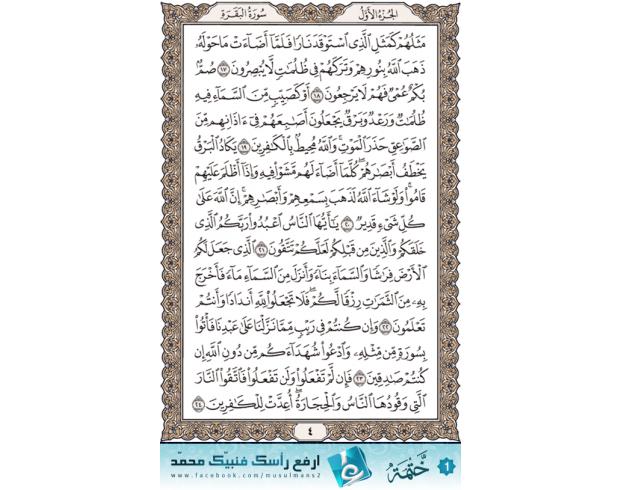 الجزء الأول
سورة البقرة
مَثَلُهُمْ كَمَثَلِ الَّذِي اسْتَوْقَدَ نَارًا فَلَمَّا أَضَاءَتْ مَا حَوْلَهُ
ذَهَبَ اللَّهُ بِنُورِهِمْ وَتَرَكَهُمْ فِي ظُلُمَاتٍ لَّا يُبْصِرُونَ ١٧ صُمٌّ
بُكْمٌ عُمْيٌ فَهُمْ لَا يَرْجِعُونَ ١٨ أَوْ كَصَيِّبٍ مِّنَ السَّمَاءِ فِيهِ
ظُلُمَاتٌ وَرَعْدٌ وَبَرْقٌ يَجْعَلُونَ أَصَابِعَهُمْ فِي آذَانِهِم مِّنَ
الصَّوَاعِقِ حَذَرَ الْمَوْتِ ۚ وَاللَّهُ مُحِيطٌ بِالْكَافِرِينَ ١٩ يَكَادُ الْبَرْقُ
يَخْطَفُ أَبْصَارَهُمْ ۖ كُلَّمَا أَضَاءَ لَهُم مَّشَوْا فِيهِ وَإِذَا أَظْلَمَ عَلَيْهِمْ
قَامُوا ۚ وَلَوْ شَاءَ اللَّهُ لَذَهَبَ بِسَمْعِهِمْ وَأَبْصَارِهِمْ ۚ إِنَّ اللَّهَ عَلَىٰ
كُلِّ شَيْءٍ قَدِيرٌ ٢٠ يَا أَيُّهَا النَّاسُ اعْبُدُوا رَبَّكُمُ الَّذِي
خَلَقَكُمْ وَالَّذِينَ مِن قَبْلِكُمْ لَعَلَّكُمْ تَتَّقُونَ ٢١ الَّذِي جَعَلَ لَكُمُ
الْأَرْضَ فِرَاشًا وَالسَّمَاءَ بِنَاءً وَأَنزَلَ مِنَ السَّمَاءِ مَاءً فَأَخْرَجَ
بِهِ مِنَ الثَّمَرَاتِ رِزْقًا لَّكُمْ ۖ فَلَا تَجْعَلُوا لِلَّهِ أَندَادًا وَأَنتُمْ
تَعْلَمُونَ ٢٢ وَإِن كُنتُمْ فِي رَيْبٍ مِّمَّا نَزَّلْنَا عَلَىٰ عَبْدِنَا فَأْتُوا
بِسُورَةٍ مِّن مِّثْلِهِ وَادْعُوا شُهَدَاءَكُم مِّن دُونِ اللَّهِ إِن
كُنتُمْ صَادِقِينَ ٢٣ فَإِن لَّمْ تَفْعَلُوا وَلَن تَفْعَلُوا فَاتَّقُوا النَّارَ
الَّتِي وَقُودُهَا النَّاسُ وَالْحِجَارَةُ ۖ أُعِدَّتْ لِلْكَافِرِينَ ٢٤
٤
١ ختمة
ارفع رأسك فنبيّك محمّد
www.facebook.com/musulmans2